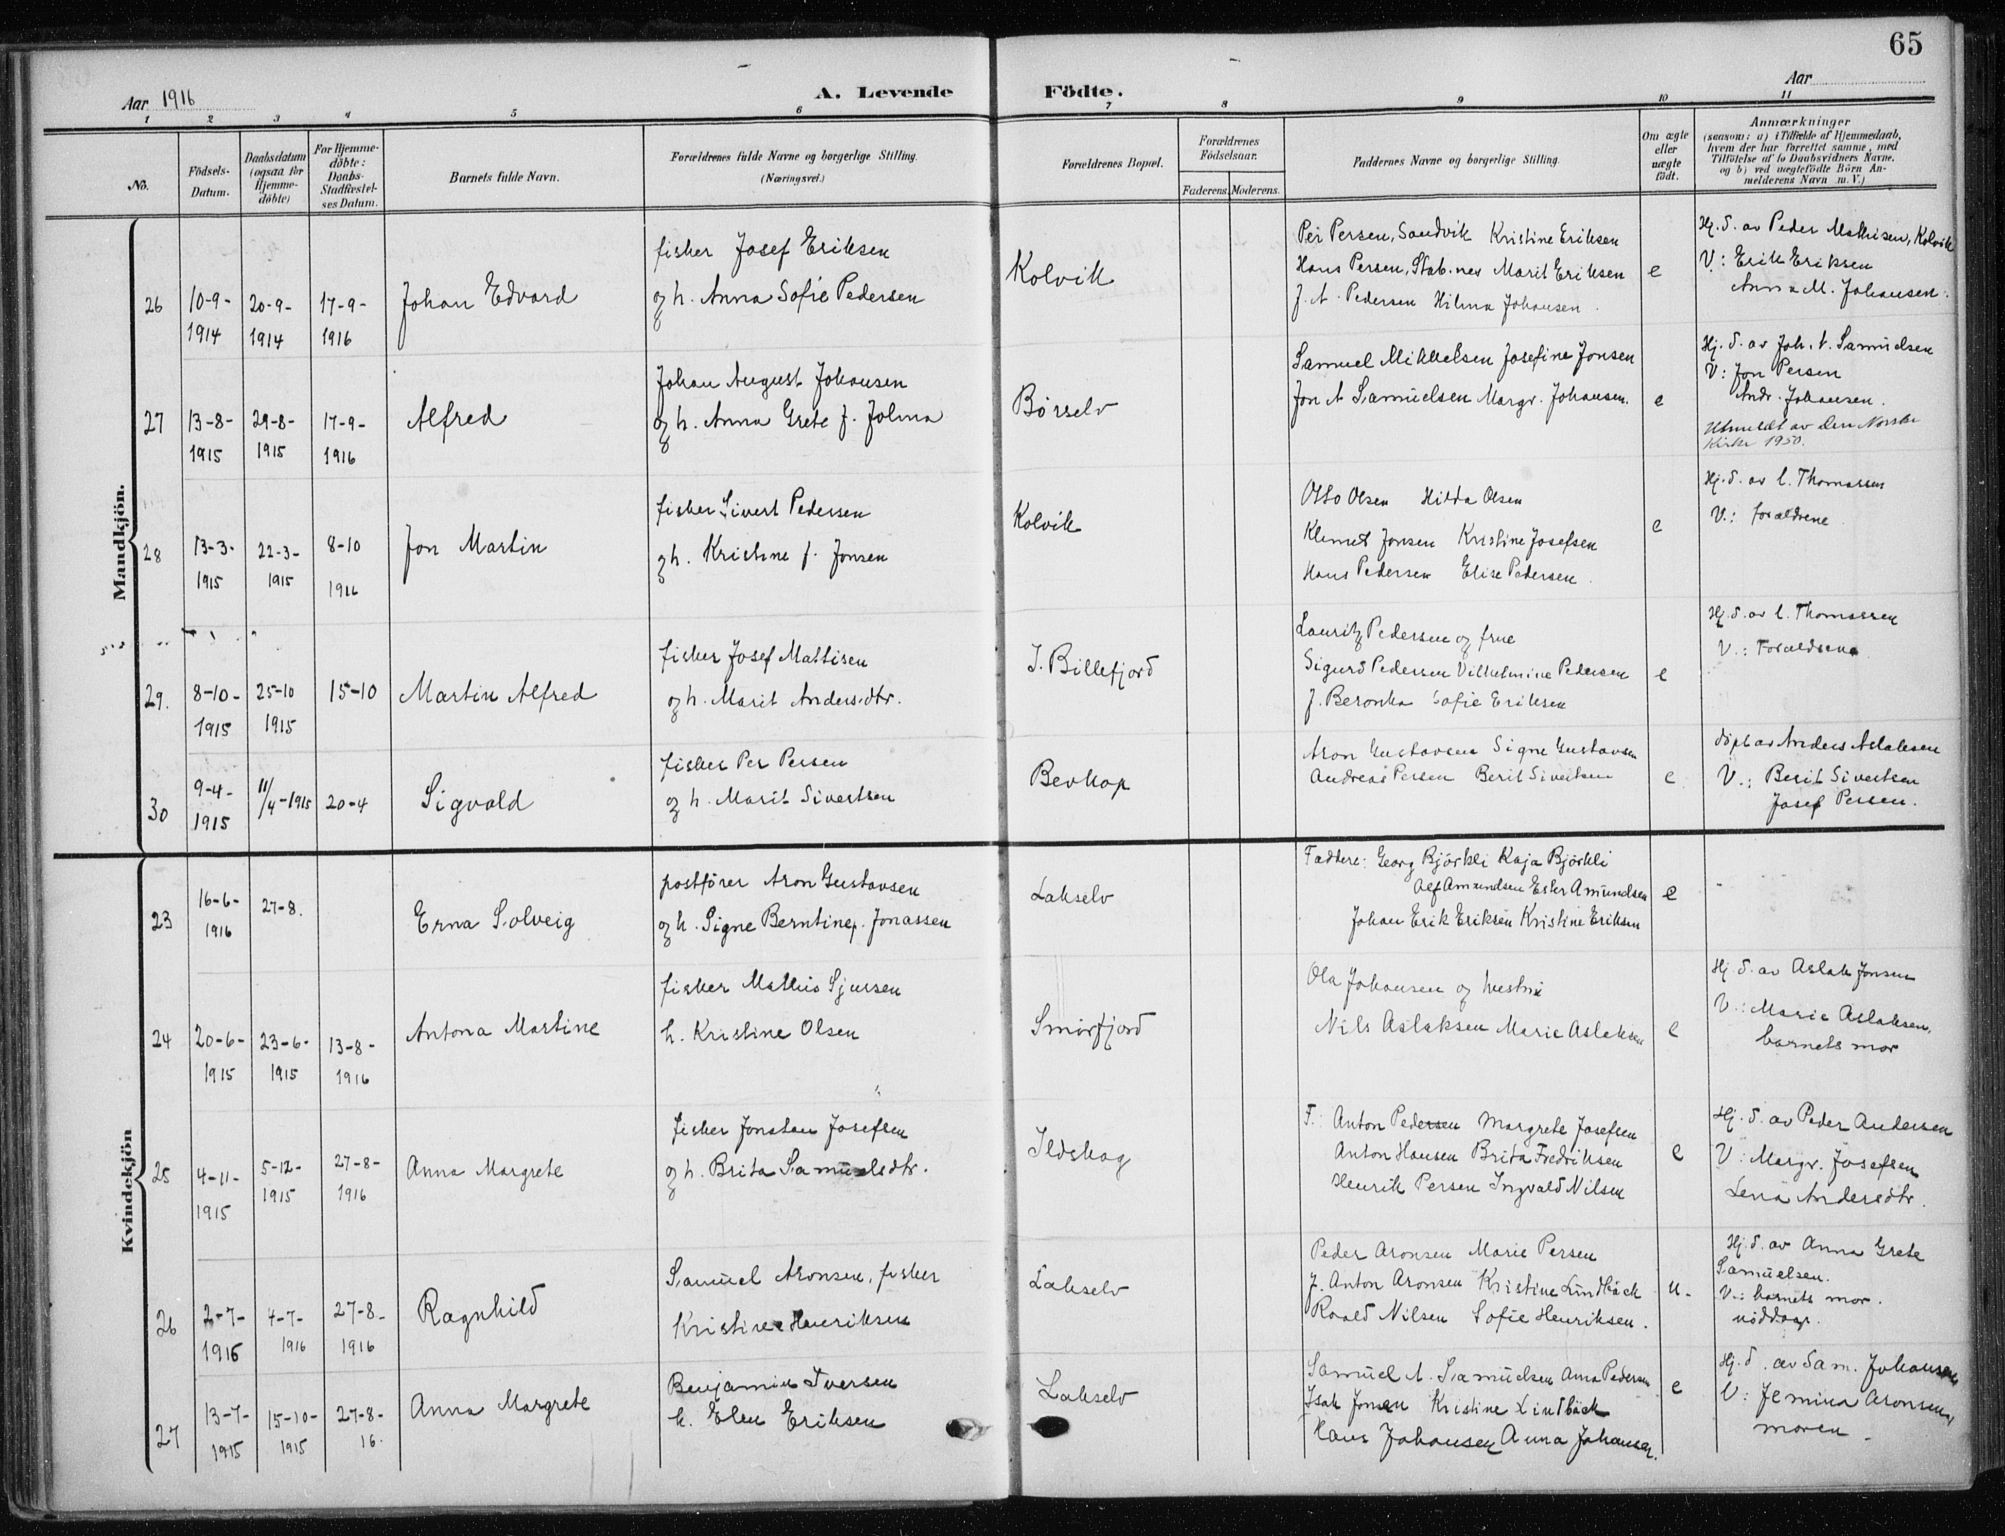 65
Aar 1916
A. Levende Födte.
Aar
1 2 3 4 5 6 7 8 9 10 11
No.
Födsels-
Datum.
Daabsdatum
(ogsaa for
Hjemme-
döbte)
For Hjemme-
döbte:
Daabs-
Stadfæstel-
ses Datum.
Barnets fulde Navn.
Forældrenes fulde Navne og borgerlige Stilling.
(Næringsvei.)
Forældrenes Bopæl.
Forældrenes
Födselsaar.
Faderens. Moderens.
Faddernes Navne og borgerlige Stilling.
Om ægte
eller
uægte
födt.
Anmærkninger
(saasom: a) i Tilfælde af Hjemmedaab,
hvem der har forrettet samme, med
Tilföielse af to Daabsvidners Navne.
og b) ved uægtefödte Börn An-
melderens Navn m. V.)
Mandkjön.
26
10-9-
1914
20-9-
1914
17-9-
1916
Johan Edvard
fisker Josef Eriksen
og h. Anna Sofie Pedersen
Kolvik
Per Persen, Sandvik Kristine Eriksen
Hans Persen, Stab.nes Marit Eriksen
J. A. Pedersen Hilma Johansen.
e
Hj. d. av Peder Mathisen, Kolvik
V: Erik Eriksen
Anna M. Johansen.
27
13-8-
1915
29-8-
1915
17-9-
1916
Alfred
Johan August Johansen
og h. Anna Grete f. Jolma
Børselv
Samuel Mikkelsen Josefine Jonsen
Jon A Samuelsen Margr. Johansen.
e
Hj. d. av Joh. A. Samuelsen
V: Jon Persen
Andr. Johansen.
Utmeldt av den Norske
Kirke 1950.
28
13-3-
1915
22-3-
1915
8-10
1916
Jon Martin
fisker Sivert Pedersen
og h. Kristine f. Jonsen
Kolvik
Otto Olsen Hilda Olsen
Klemet Jonsen Kristine Josefsen
Hans Pedersen Elise Pedersen.
e
Hj. d. av L. Thomassen
V.: forældrene
29.
8-10-
1915
25-10
1915
15-10
Martin Alfred
fisker Josef Mattisen
og h. Marit Andersdtr.
I. Billefjord
Lauritz Pedersen og frue
Sigurd Pedersen Vilhelmine Pedersen
J. Beronka Sofie Eriksen
e
Hj. d. av L. Thomassen
V.: Forældrene
30
9-4-
1915
11/4-1915
20-4
Sigvald
fisker Per Persen
og h. Marit Sivertsen
Bevkop
Aron Gustavsen Signe Gustavsen
Andreas Persen Berit Sivertsen
e
døpt av Anders Aslaksen
V.: Berit Sivertsen
Josef Persen.
Kvindekjön
23
16-6-
1916
27-8.
Erna Solveig
postfører Aron Gustavsen
og h. Signe Berntine f. Jonassen
Lakselv
Faddere: Georg Bjørkli Kaja Bjørkli
Alf Amundsen Ester Amundsen
Johan Erik Eriksen Kristine Eriksen
e
24
20-6-
1915
23-6-
1915
13-8-
1916
Antona Martine
fisker Mathis Sjursen
h. Kristine Olsen
Smørfjord
Ola Johansen og hustru
Nils Aslaksen Marie Aslaksen
e
Hj. d. av Aslak Jonsen
V.: Marie Aslaksen,
barnets mor
25
4-11-
1915
5-12-
1915
27-8-
1916
Anna Margrete
fisker Jonatan Josefsen
og h. Brita Samuelsdtr.
Ildskog
F: Anton Pedersen Margrete Josefsen
Anton Hansen Brita Fredriksen
Henrik Persen Ingvald Nilsen
e
Hj. d. av Peder Andersen
V: Margr. Josefsen
Lena Andersdtr.
26
2-7-
1916
4-7-
1916
27-8-
1916
Ragnhild
Samuel Aronsen, fisker
Kristine Henriksen
Lakselv
Peder Aronsen Marie Persen
J. Anton Aronsen Kristine Lindbäck
Roald Nilsen Sofie Henriksen.
u.
Hj. d. av Anna Grete
Samuelsen.
V.: barnets mor.
nøddaap.
27
13-7-
1915
15-10-
1915
27-8-
16.
Anna Margrete
Benjamin Iversen
h. Elen Eriksen
Lakselv
Samuel A. Samuelsen Anna Pedersen
Isak Jonsen Kristine Lindbäck
Hans Johansen Anna Johansen.
e
Hj. d. av Sam. Johansen
V: Jemina Aronsen,
moren